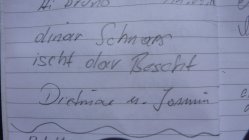 Hi Bruno
dinar Schnaps
ischt dar Bescht
Dietmar u. Jasmin